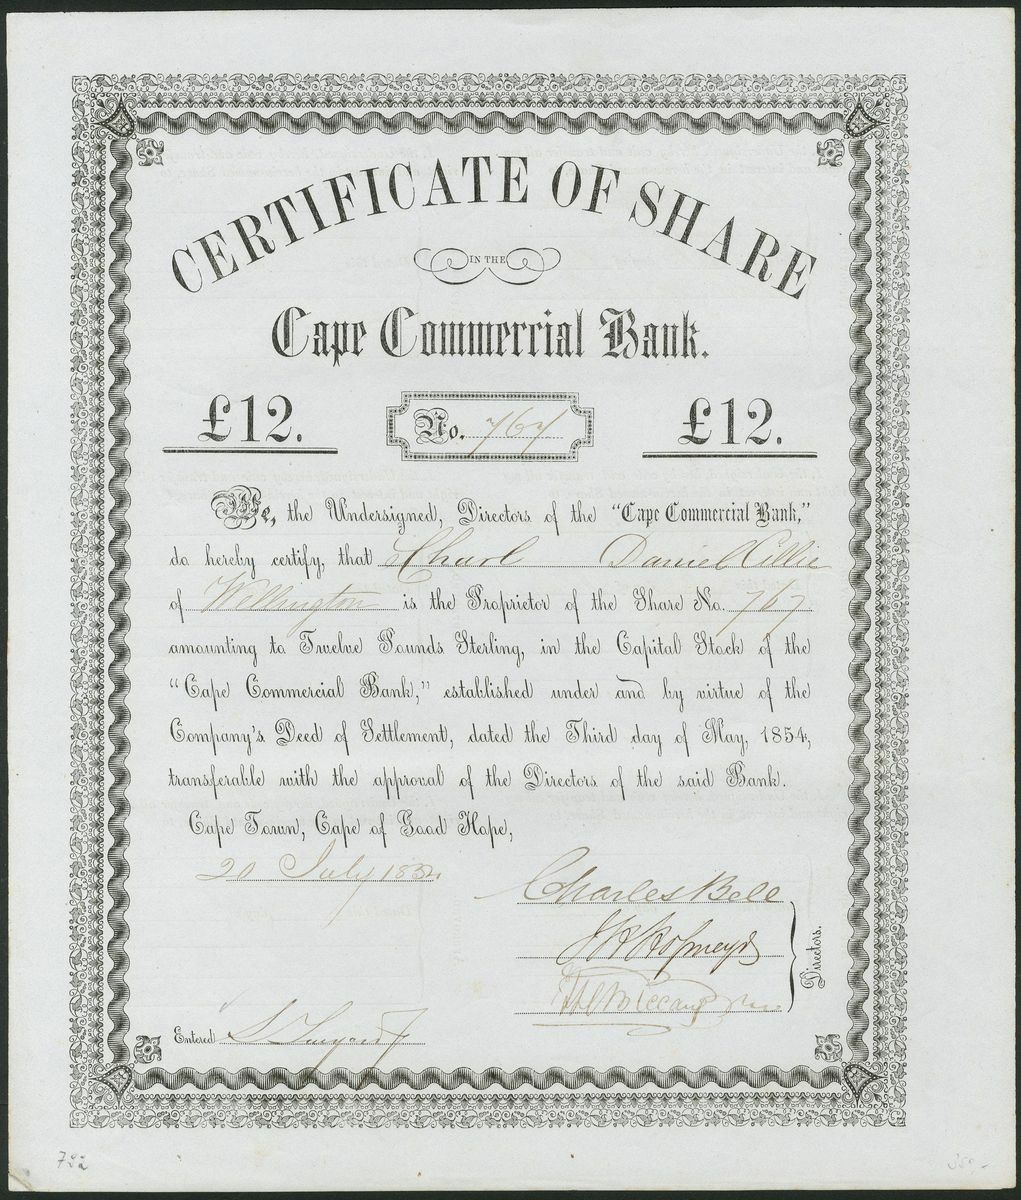 CERTIFICATE OF SHARE
IN THE
Cape Commercial Bank.
£12. No. 767 £12.
We, the Undersigned, Directors of the "Cape Commercial Bank,"
do hereby certify, that Charl Daniel Cillie
of Wellington is the Proprietor of the Share No. 767
amounting to Twelve Pounds Sterling, in the Capital Stock of the
"Cape Commercial Bank," established under and by virtue of the
Company's Deed of Settlement, dated the Third day of May, 1854,
transferable with the approval of the Directors of the said Bank.
Cape Town, Cape of Good Hope,
20 July 1854
Charles Bell
Hofmeyr
Directors.
Entered
722